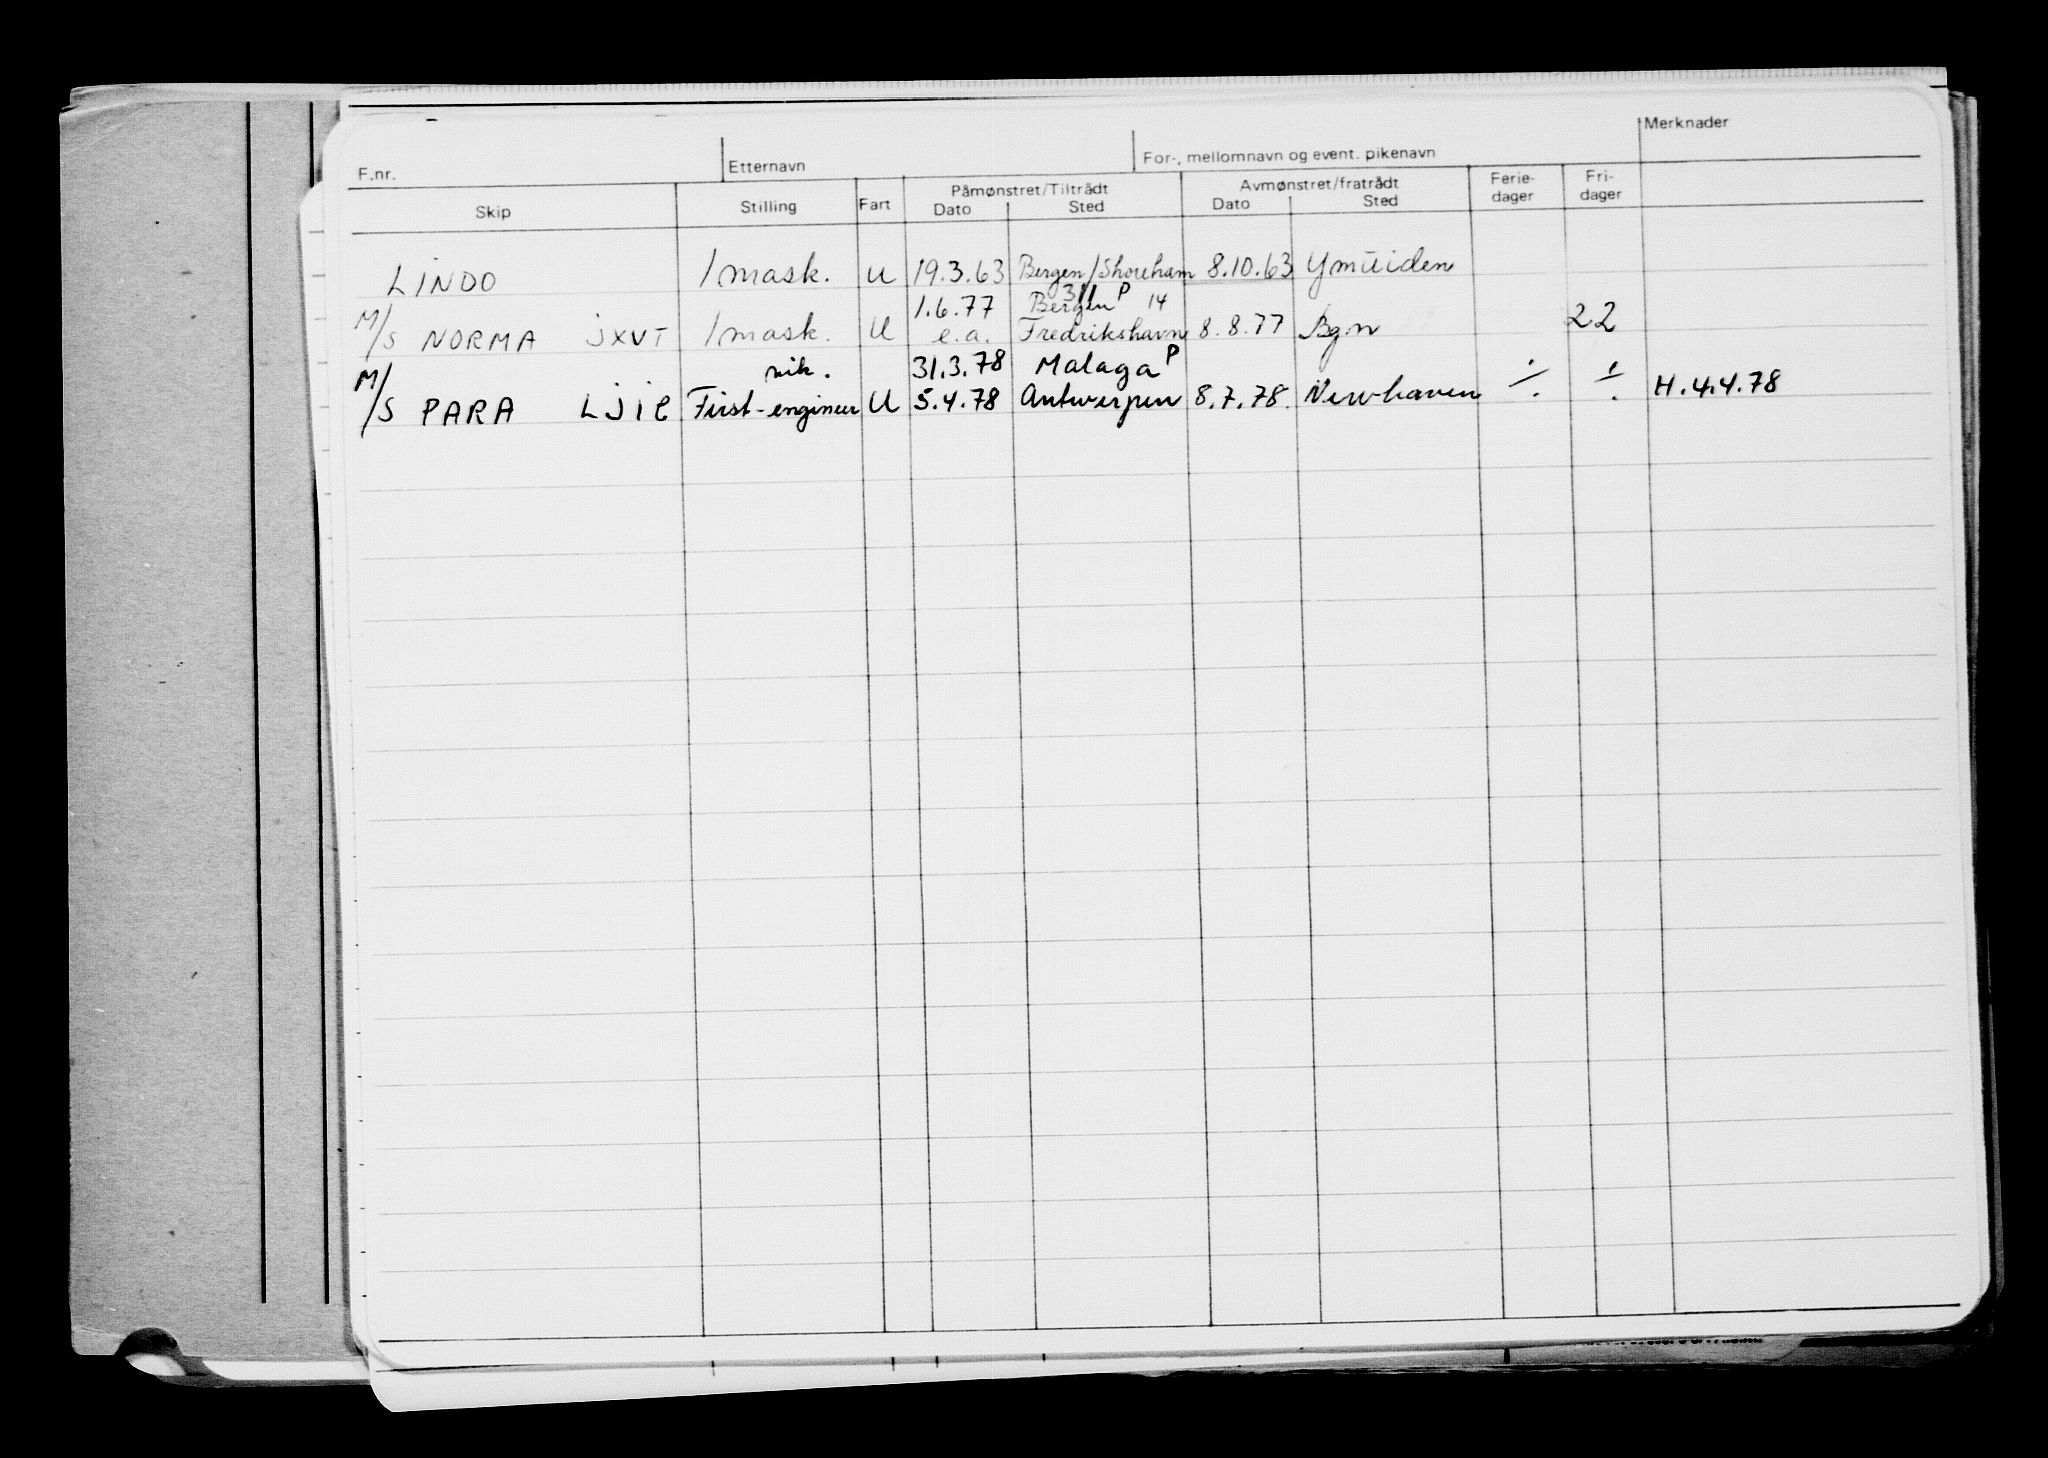 Merknader
F.nr. Etternavn For-, mellomnavn og event. pikenavn
Skip Stilling Fart Påmønstret/Tiltrådt Dato Sted Avmønstret/fratrådt Dato Sted Ferie-dager Fri-dager
LINDO 1 mask. U 19.3.63 Bergen/Shoreham 8.10.63 Ymüiden
1.6.77 Bergen P 14
M/S NORMA JXVT 1 mask. U e.a. Fredrikshavn 8.8.77 Bgn 22
vik. 31.3.78 Malaga P
M/S PARA LJIC First-engineer U 5.4.78 Antwerpen 8.7.78. Newhaven ÷ ÷ H.4.4.78